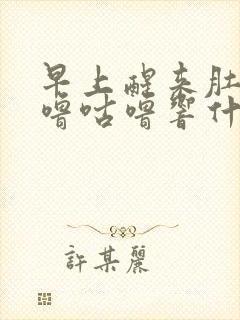 早上醒来肚
噜咕噜响什
許某麗